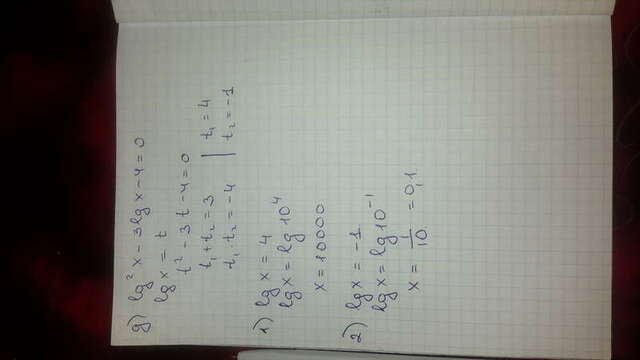 g) lg² x - 3lg x - 4 = 0
lg x = t
t² - 3t - 4 = 0
t₁ + t₂ = 3 | t₁ = 4
t₁ · t₂ = -4 | t₂ = -1
1) lg x = 4
lg x = lg 10⁴
x = 10000
2) lg x = -1
lg x = lg 10⁻¹
x = 1/10 = 0,1